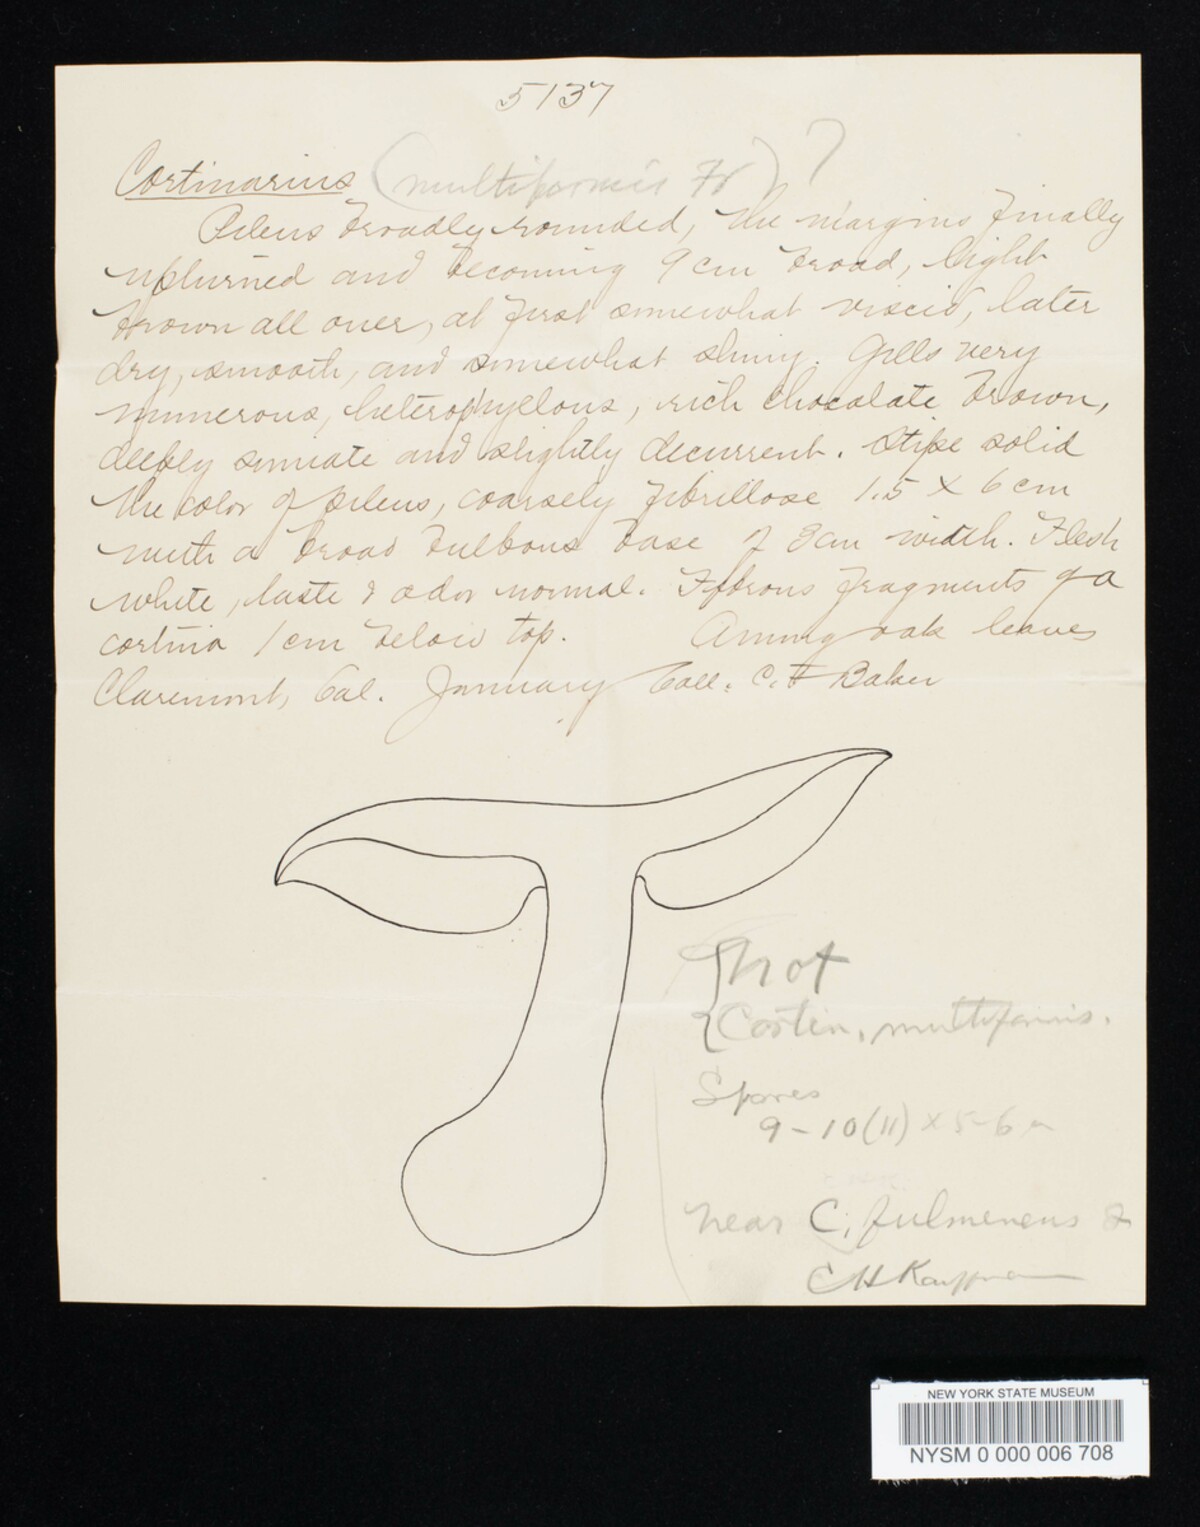 5137
Cortinarius (multiformis Fr) ?
Pileus broadly rounded, the margins finally
upturned and becoming 9 cm broad, light
brown all over, at first somewhat viscid, later
dry, smooth, and somewhat shiny. Gills very
numerous, heterophyllous, rich chocolate brown,
deeply sinuate and slightly decurrent. Stipe solid
the color of pileus, coarsely fibrillose 1.5 x 6 cm
with a broad bulbous base of 3 cm width. Flesh
white, taste & odor normal. Fibrous fragments of a
cortina 1 cm below top. Among oak leaves
Claremont, Cal. January Coll. C.F. Baker
{not
{Cortin. multiformis.
Spores
9-10(11) x 5-6
near C. fulmeneus
CH Kauffman
NEW YORK STATE MUSEUM
NYSM 0 000 006 708